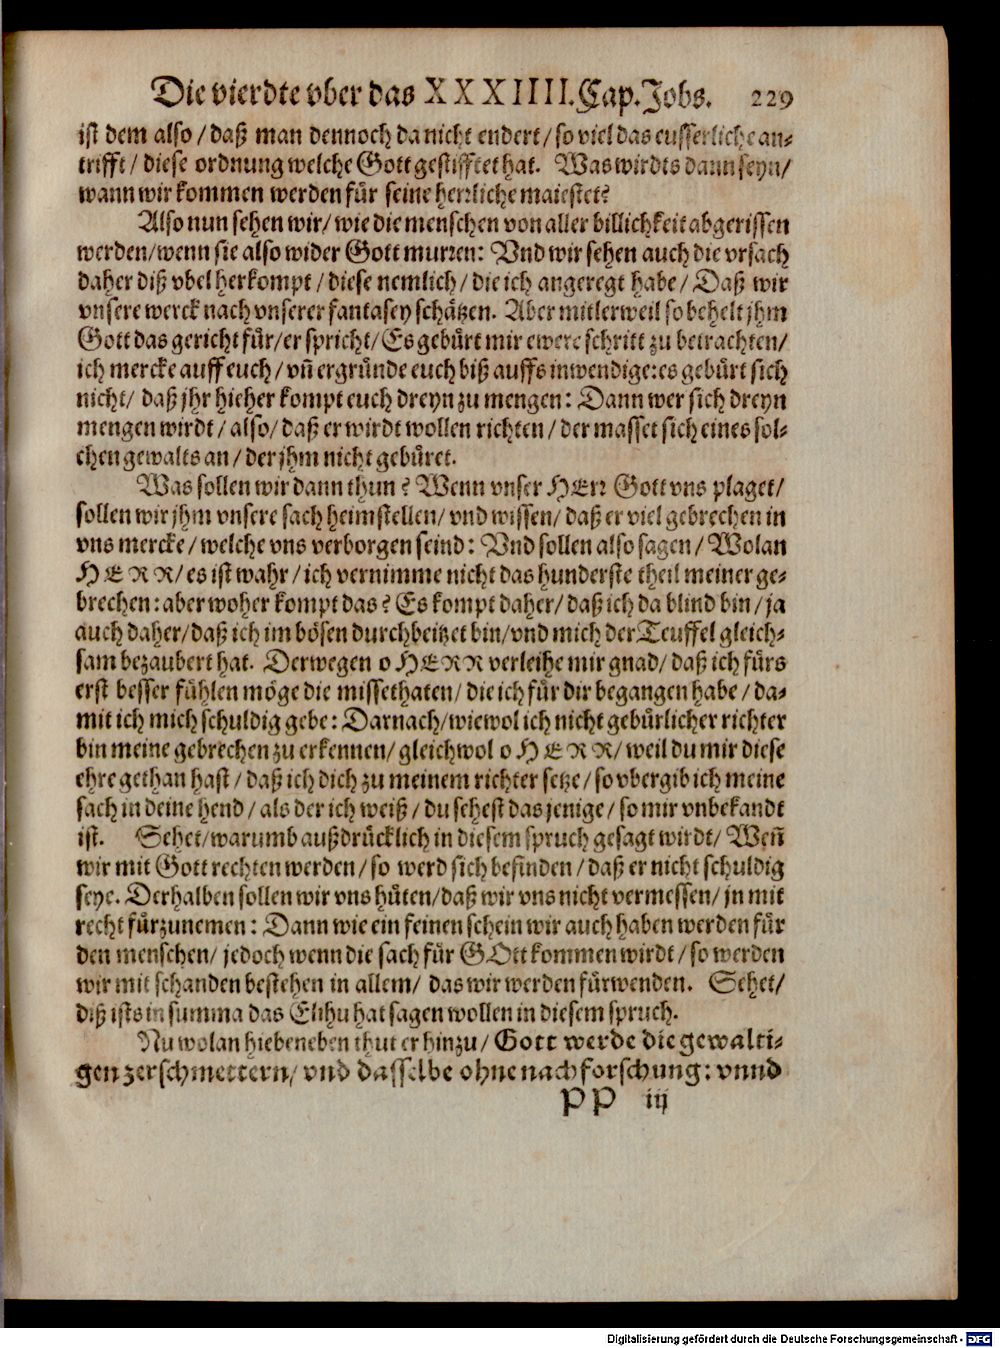 Die vierdte vber das XXXIIII. Cap. Jobs. 229
ist dem also / daß man dennoch da nicht endert / so viel das eusserliche an-
trifft / diese ordnung welche Gott gestifftet hat. Was wirdts dann seyn /
wann wir kommen werden für seine herrliche maiestet?
Also nun sehen wir / wie die menschen von aller billichkeit abgerissen
werden / wenn sie also wider Gott murren: Vnd wir sehen auch die vrsach
daher diß vbel herkompt / diese nemlich / die ich angeregt habe / Daß wir
vnsere werck nach vnserer fantasey schätzen. Aber mitlerweil so behelt jhm
Gott das gericht für / er spricht / Es gebürt mir ewere schritt zu betrachten /
ich mercke auff euch / vñ ergründe euch biß auffs inwendige: es gebürt sich
nicht / daß jhr hieher kompt euch dreyn zu mengen: Dann wer sich dreyn
mengen wirdt / also / daß er wirdt wollen richten / der masset sich eines sol-
chen gewalts an / der jhm nicht gebüret.
Was sollen wir dann thun? Wenn vnser HErr Gott vns plaget /
sollen wir jhm vnsere sach heimstellen / vnd wissen / daß er viel gebrechen in
vns mercke / welche vns verborgen seind: Vnd sollen also sagen / Wolan
HERR / es ist wahr / ich vernimme nicht das hunderste theil meiner ge-
brechen: aber woher kompt das? Es kompt daher / daß ich da blind bin / ja
auch daher / daß ich im bösen durchbeitzet bin / vnd mich der Teuffel gleich-
sam bezaubert hat. Derwegen o HERR verleihe mir gnad / daß ich fürs
erst besser fühlen möge die missethaten / die ich für dir begangen habe / da-
mit ich mich schuldig gebe: Darnach / wiewol ich nicht gebürlicher richter
bin meine gebrechen zu erkennen / gleichwol o HERR / weil du mir diese
ehre gethan hast / daß ich dich zu meinem richter setze / so vbergib ich meine
sach in deine hend / als der ich weiß / du sehest das jenige / so mir vnbekandt
ist. Sehet / warumb außdrücklich in diesem spruch gesagt wirdt / Weñ
wir mit Gott rechten werden / so werd sich befinden / daß er nicht schuldig
seye. Derhalben sollen wir vns hüten / daß wir vns nicht vermessen / jn mit
recht fürzunemen: Dann wie ein feinen schein wir auch haben werden für
den menschen / jedoch wenn die sach für GOtt kommen wirdt / so werden
wir mit schanden bestehen in allem / das wir werden fürwenden. Sehet /
diß ists in summa das Elihu hat sagen wollen in diesem spruch.
Nu wolan hieneben thut er hinzu / Gott werde die gewalti-
gen zerschmettern / vnd dasselbe ohne nachforschung: vnnd
PP iij
Digitalisierung gefördert durch die Deutsche Forschungsgemeinschaft - DFG